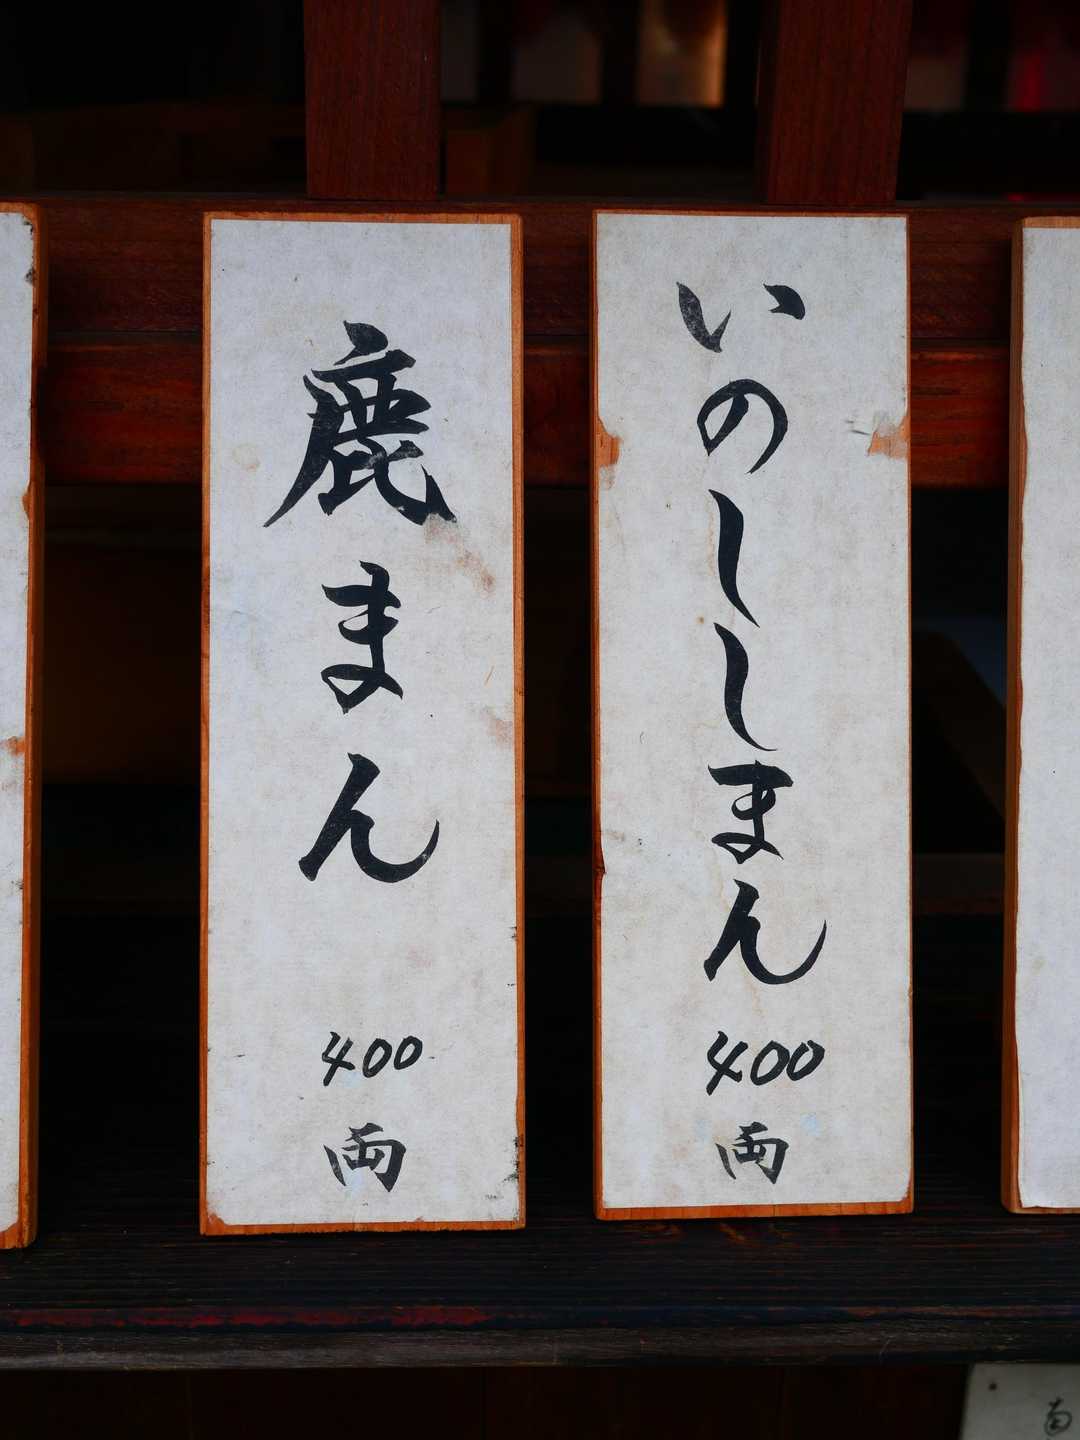 いのししまん
400
両
鹿まん
400
両